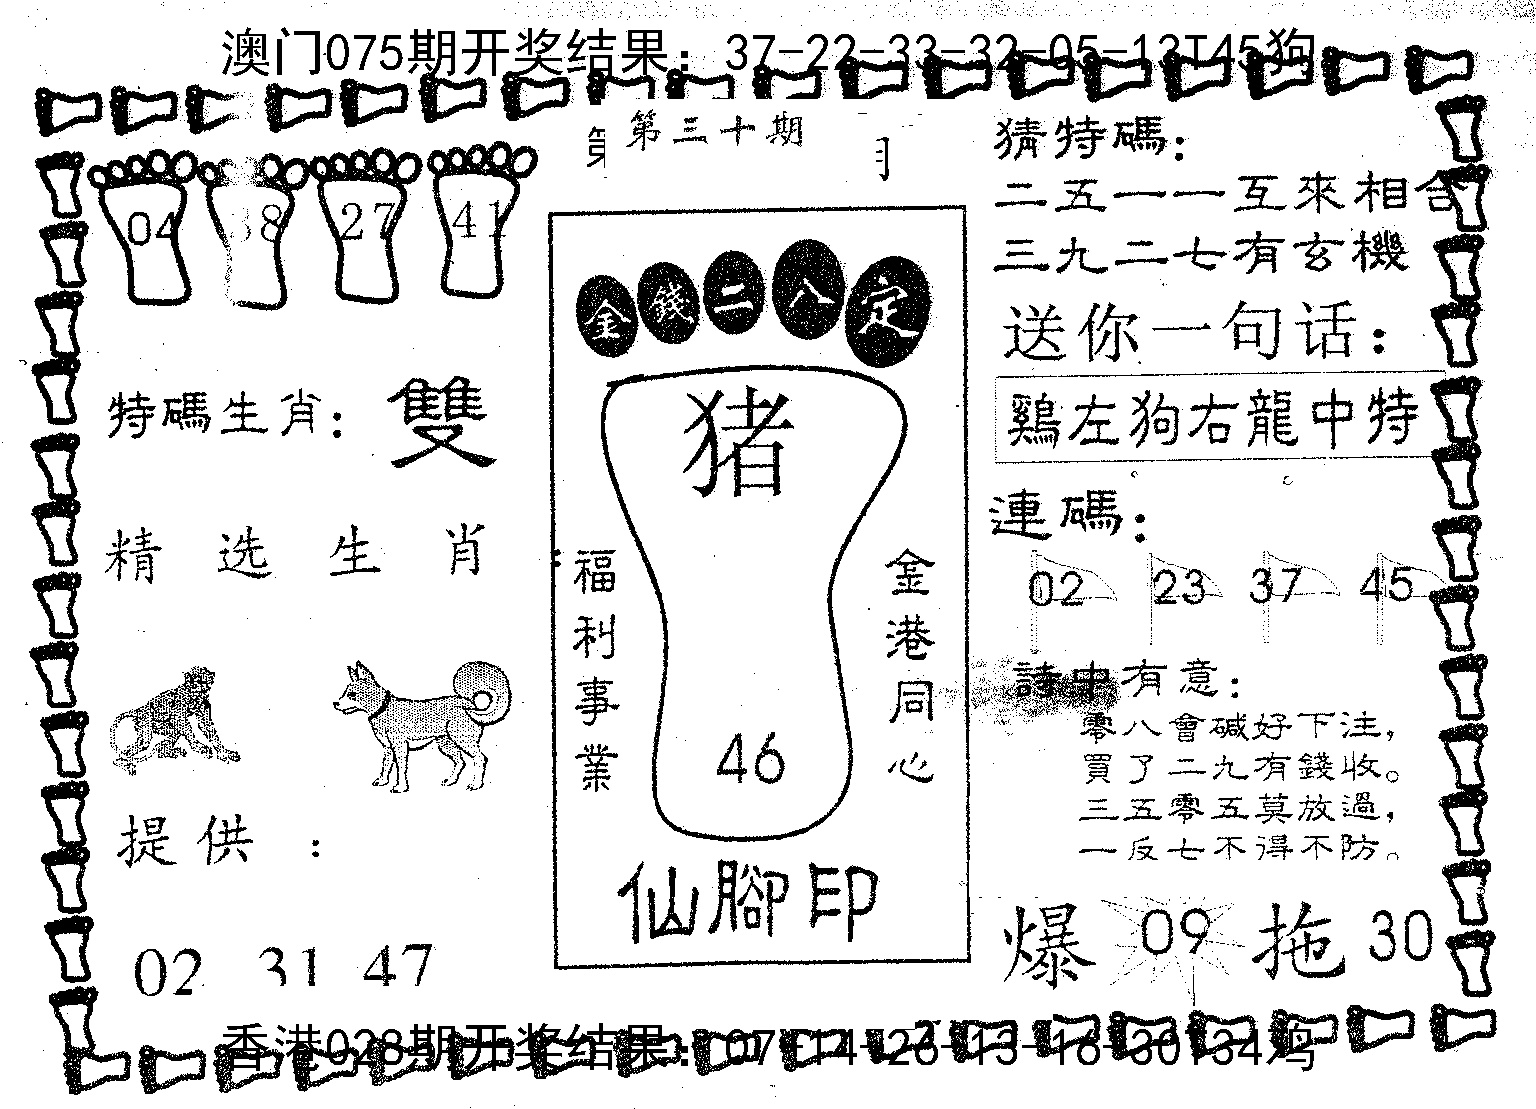 澳门075期开奖结果：37-22-33-32-05-13T45狗
第三十期
04 38 27 41
特碼生肖：雙
精选生肖：
提供：
02 31 47
金錢二八定
猪
福利事業
金港同心
46
仙腳印
猜特碼：
二五一一互來相合
三九二七有玄機
送你一句话：
鷄左狗右龍中特
連碼：
02 23 37 45
詩中有意：
零八會碱好下注，
買了二九有錢收。
三五零五莫放過，
一反七不得不防。
爆 09 拖 30
香港028期开奖结果：07-14-26-13-16-30T34鸡